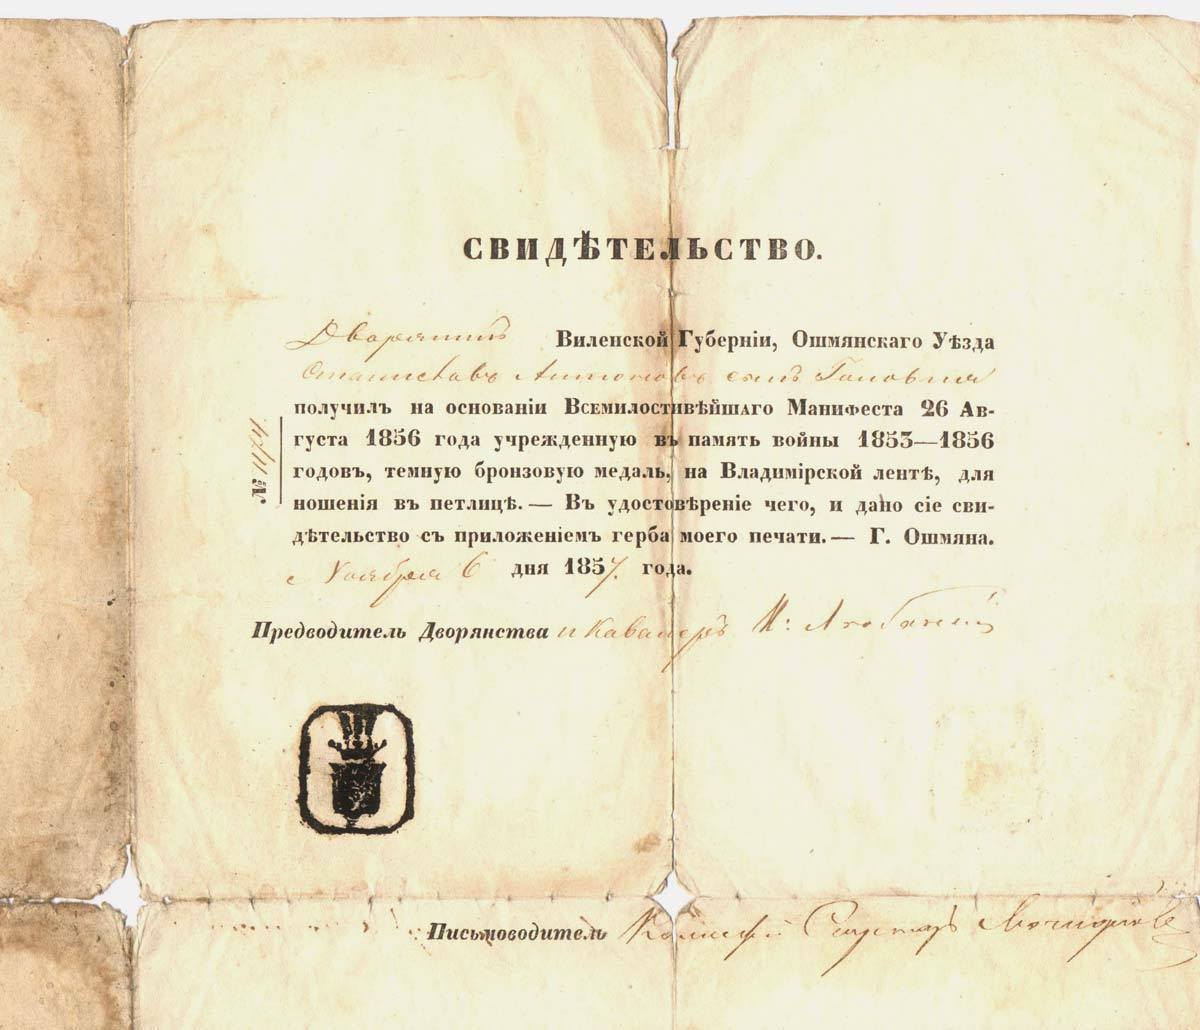 СВИДѢТЕЛЬСТВО.
Дворянинъ Виленской Губерніи, Ошмянскаго Уѣзда
Станиславъ Антоновъ сынъ Головня
получилъ на основаніи Всемилостивѣйшаго Манифеста 26 Ав-
густа 1856 года учрежденную въ память войны 1853—1856
годовъ, темную бронзовую медаль, на Владимірской лентѣ, для
ношенія въ петлицѣ.— Въ удостовѣреніе чего, и дано сіе сви-
дѣтельство съ приложеніемъ герба моего печати.— Г. Ошмяна.
Ноября 6 дня 1857 года.
№ 1174
Предводитель Дворянства и Кавалеръ
Письмоводитель